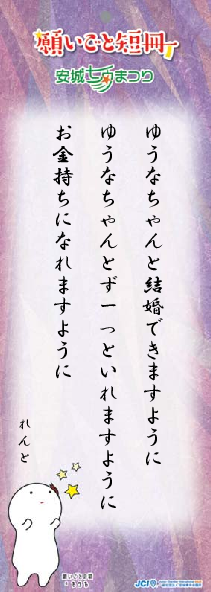 願いごと短冊
安城七夕まつり
ゆうなちゃんと結婚できますように
ゆうなちゃんとずーっといれますように
お金持ちになれますように
れんと
願いごと短冊
JCI